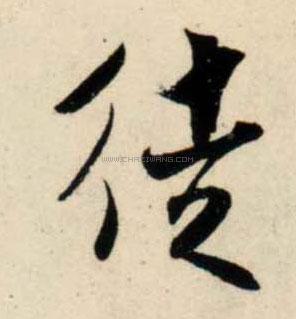 徒
WWW.CHAZIWANG.COM